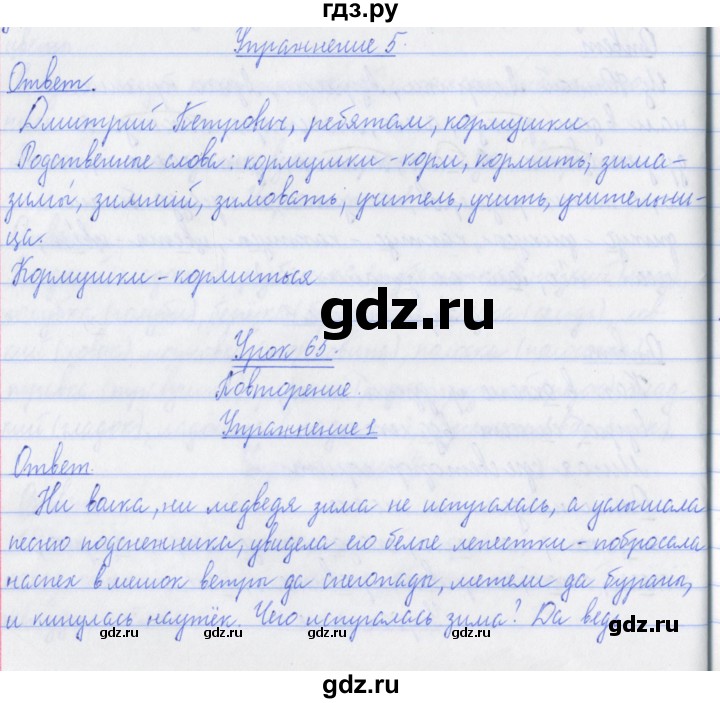 гдз.ру
Упражнение 5.
Ответ.
Дмитрий Петрович, ребятам, кормушки
Родственные слова: кормушки - корм, кормить; зима -
зимы́, зимний, зимовать; учитель, учить, учительни-
ца.
Кормушки - кормиться
gdz.ru
Урок 65.
Повторение.
Упражнение 1
Ответ.
Ни волка, ни медведя зима не испугалась, а услышала
песню подснежника, увидела его белые лепестки - побросала
наспех в мешок ветры да снегопады, метели да бураны,
и кинулась наутёк. Чего испугалась зима? Да ведь
gdz.ru gdz.ru gdz.ru gdz.ru
gdz.ru